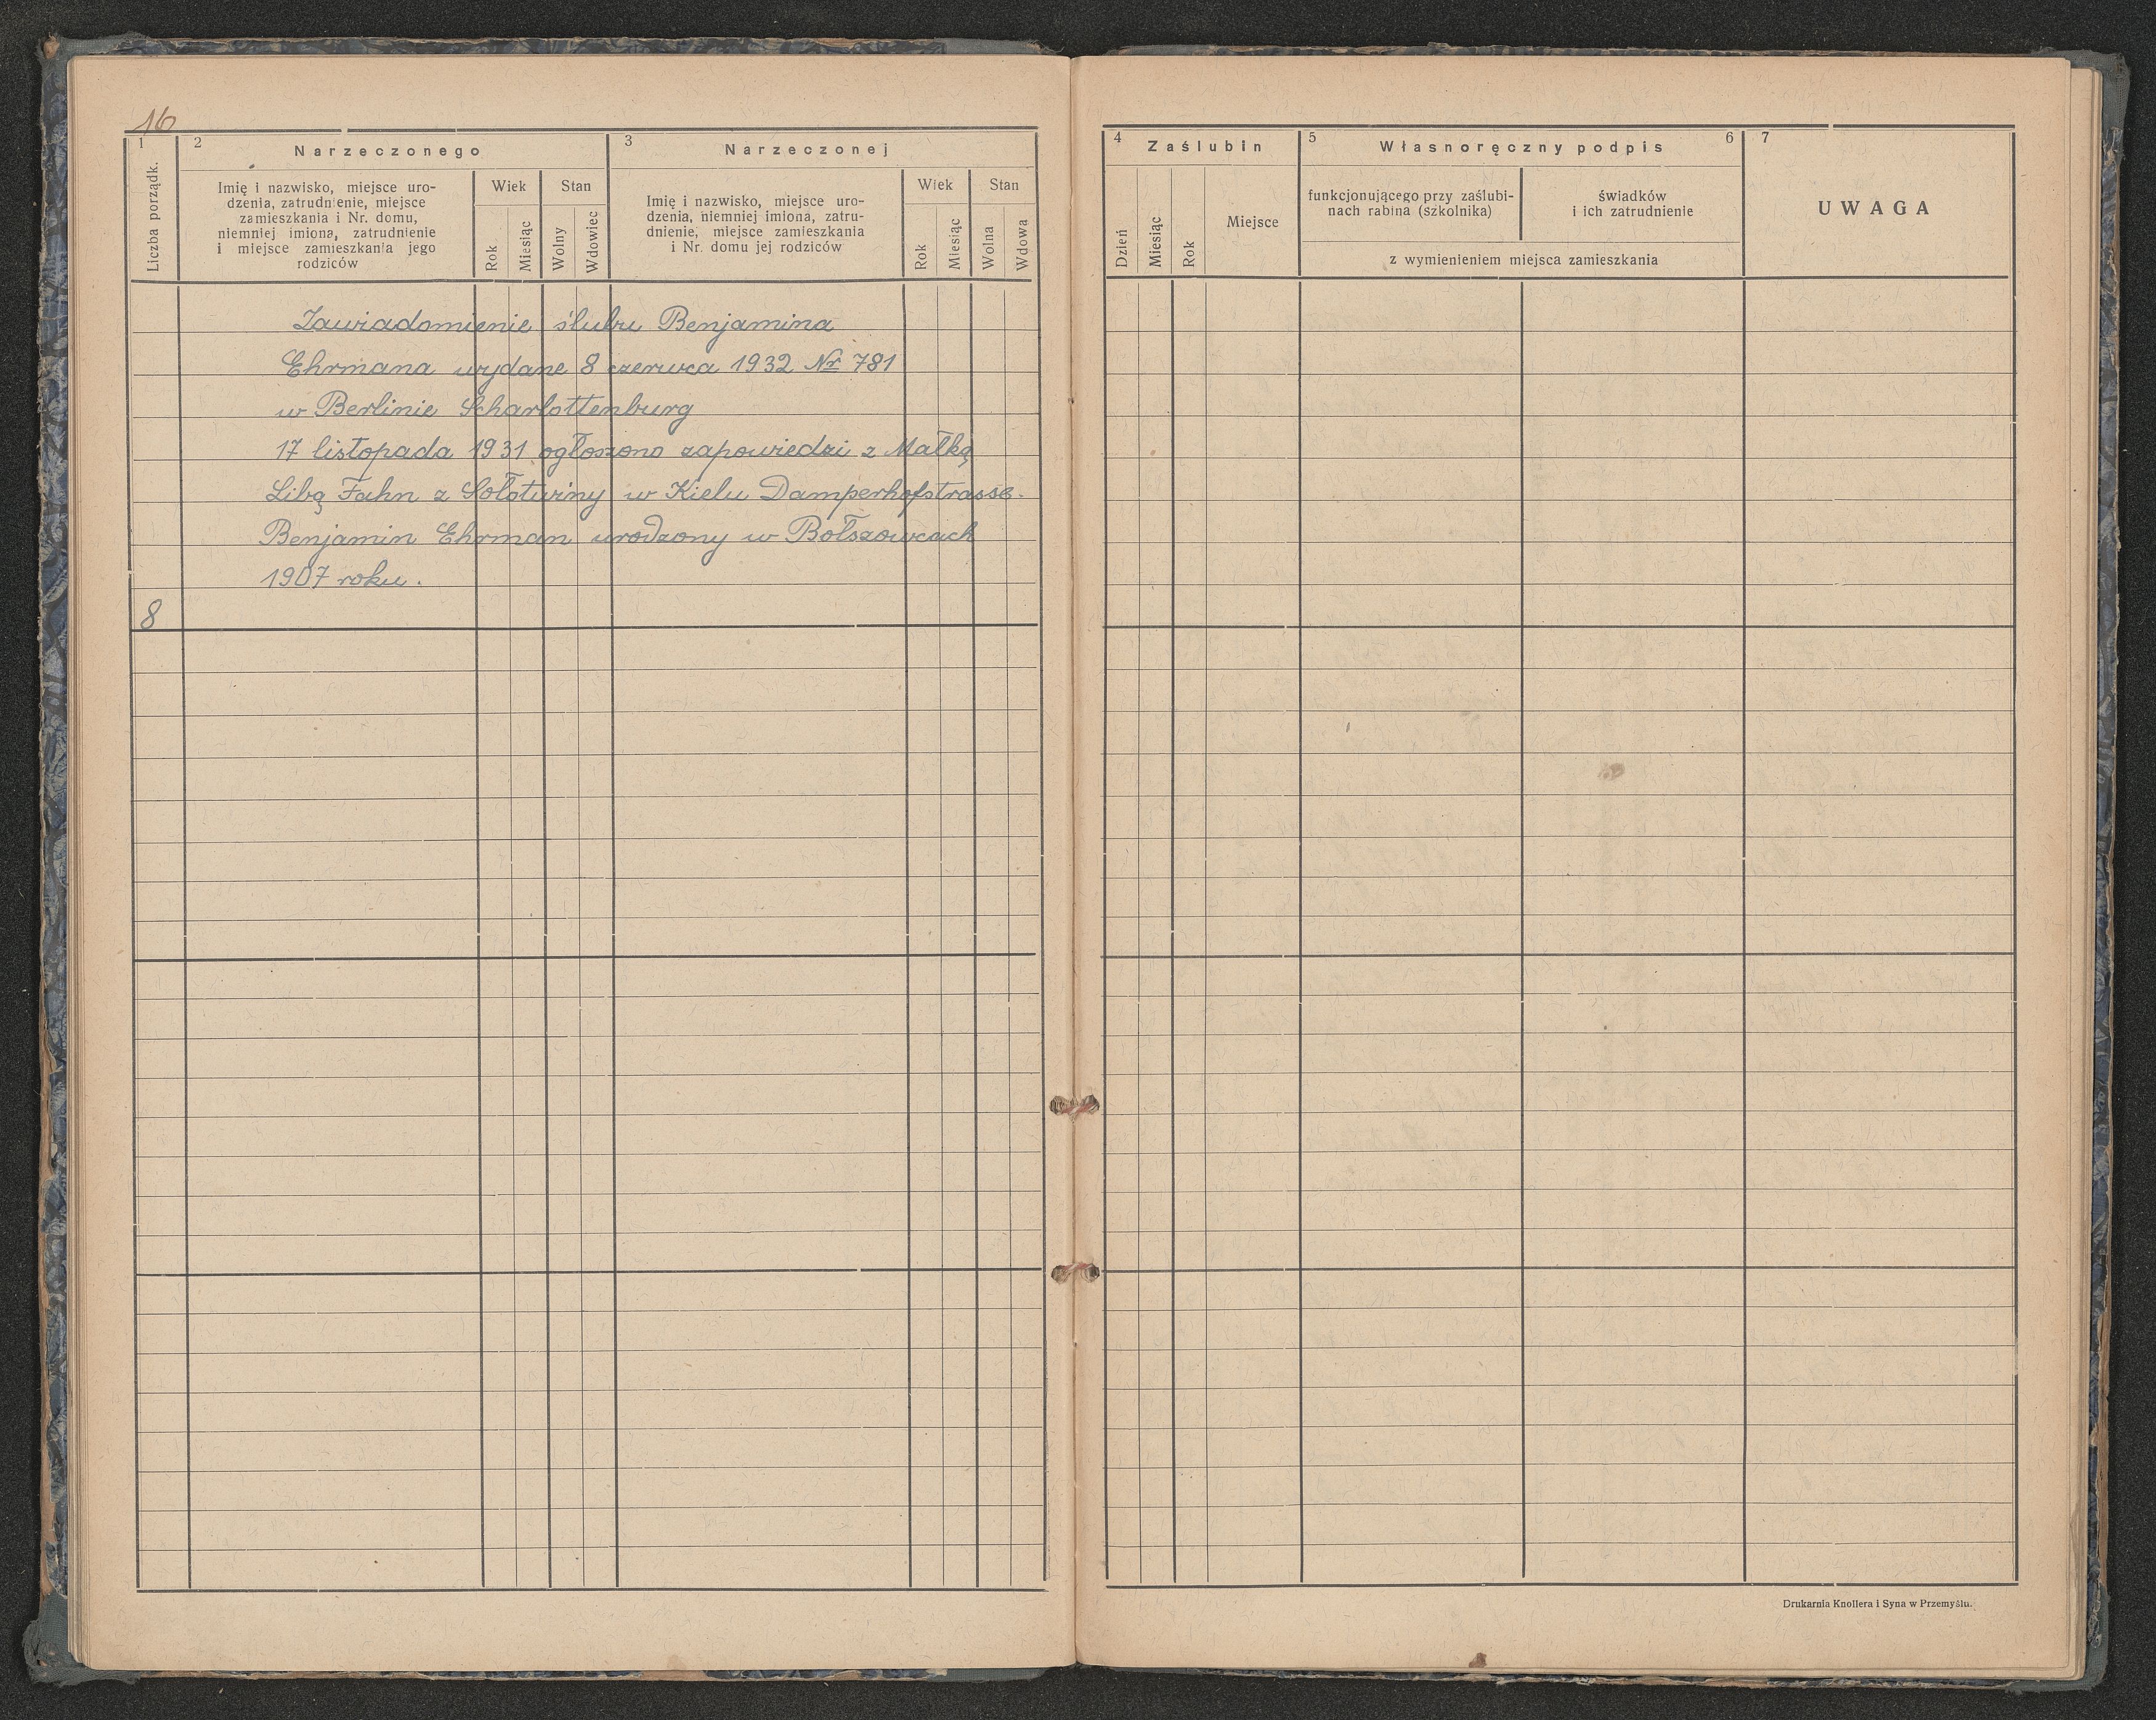 16
1
Liczba porządk.
2
Narzeczonego
Imię i nazwisko, miejsce uro-
dzenia, zatrudnienie, miejsce
zamieszkania i Nr. domu,
niemniej imiona, zatrudnienie
i miejsce zamieszkania jego
rodziców
Wiek
Rok
Miesiąc
Stan
Wolny
Wdowiec
3
Narzeczonej
Imię i nazwisko, miejsce uro-
dzenia, niemniej imiona, zatru-
dnienie, miejsce zamieszkania
i Nr. domu jej rodziców
Wiek
Rok
Miesiąc
Stan
Wolna
Wdowa
Zawiadomienie ślubu Benjamina
Ehrmana wydane 8 czerwca 1932 Nr 781
w Berlinie Scharlottenburg
17 listopada 1931 ogłoszono zapowiedzi z Małką
Libą Fahn z Sołotwiny w Kielu Damperhofstrasse.
Benjamin Ehrman urodzony w Bołszowcach
1907 roku.
8
4
Zaślubin
Dzień
Miesiąc
Rok
Miejsce
5
Własnoręczny podpis
6
funkcjonującego przy zaślubi-
nach rabina (szkolnika)
świadków
i ich zatrudnienie
z wymienieniem miejsca zamieszkania
7
UWAGA
Drukarnia Knollera i Syna w Przemyślu.